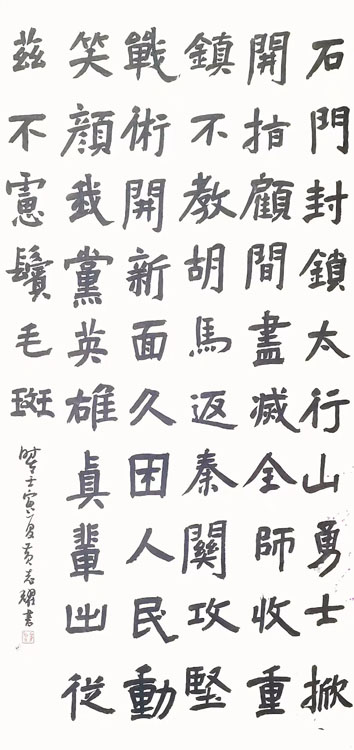 石門封鎖太行山勇士掀
開指顧間盡滅全師收重
鎮不教胡馬返秦關攻堅
戰術開新面久困人民動
笑顏我黨英雄眞輩出從
茲不慮鬢毛斑
時壬寅夏黃志耀書